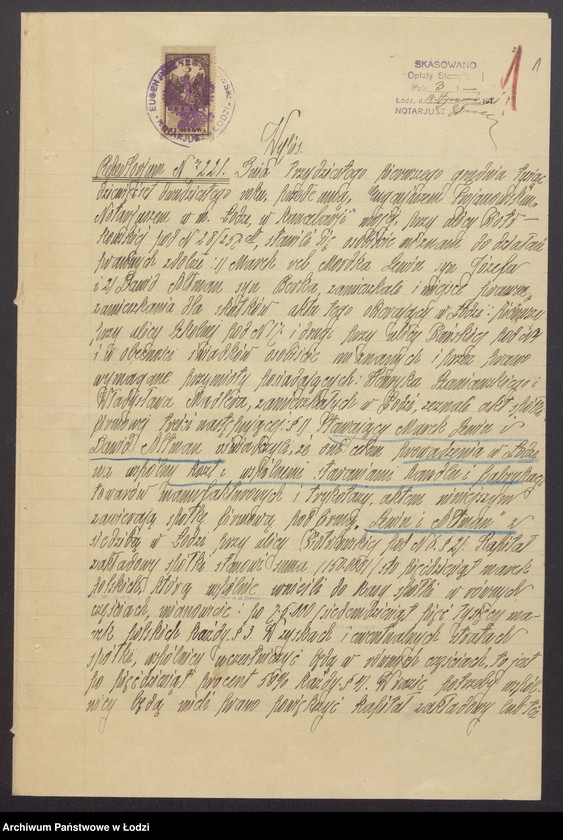 SKASOWANO
Opłaty Stempl
Mk. 3
Łódź, d. 14 192
NOTARJUSZ
1
1
EUGENJUSZ TROJANOWSKI
NOTARJUSZ w ŁODZI
Wypis.
Repertorium № 7221. Dnia trzydziestego pierwszego grudnia tysiąc
dziewięćset dwudziestego roku, przede mną, Eugenjuszem Trojanowskim,
Notarjuszem w m. Łodzi, w Kancelarji mojej, przy ulicy Piotr-
kowskiej pod № stawili się osobiście nieznani do działań
prawnych zdolni: 1/ Marek vel Mordka Lewin syn Józefa
i 2/ Dawid Altman syn Berka, zamieszkali i miejsce prawne
zamieszkania dla skutków aktu tego obierający w Łodzi: pierwszy
przy ulicy Szkolnej pod № i drugi przy ulicy Pańskiej pod №
i w obecności świadków osobiście mi znanych i przez prawo
wymagane przymioty posiadających: Henryka i
Władysława zamieszkałych w Łodzi, zeznali akt spółki
firmowej treści następującej: § 1. Stawający Marek Lewin i
Dawid Altman oświadczyli, że oni celem prowadzenia w Łodzi
na wspólny koszt i wspólnemi staraniami handlu i fabrykacji
towarów manufakturowych i trykotaży, aktem niniejszym
zawierają spółkę firmową pod firmą „Lewin i Altman" z
siedzibą w Łodzi przy ulicy Piotrkowskiej pod № § 2. Kapitał
zakładowy spółki stanowi suma (150.000) sto pięćdziesiąt marek
polskich, którą wspólnie wnieśli do kasy spółki w równych
częściach, mianowicie: po 75.000 (siedemdziesiąt pięć tysięcy ma-
rek polskich każdy. § 3. W zyskach i ewentualnych stratach
spółki, wspólnicy uczestniczyć będą w równych częściach, to jest
po pięćdziesiąt procent 50% każdy. § 4. W razie potrzeby wspól-
nicy będą mieli prawo powiększyć kapitał zakładowy lub też
Archiwum Państwowe w Łodzi